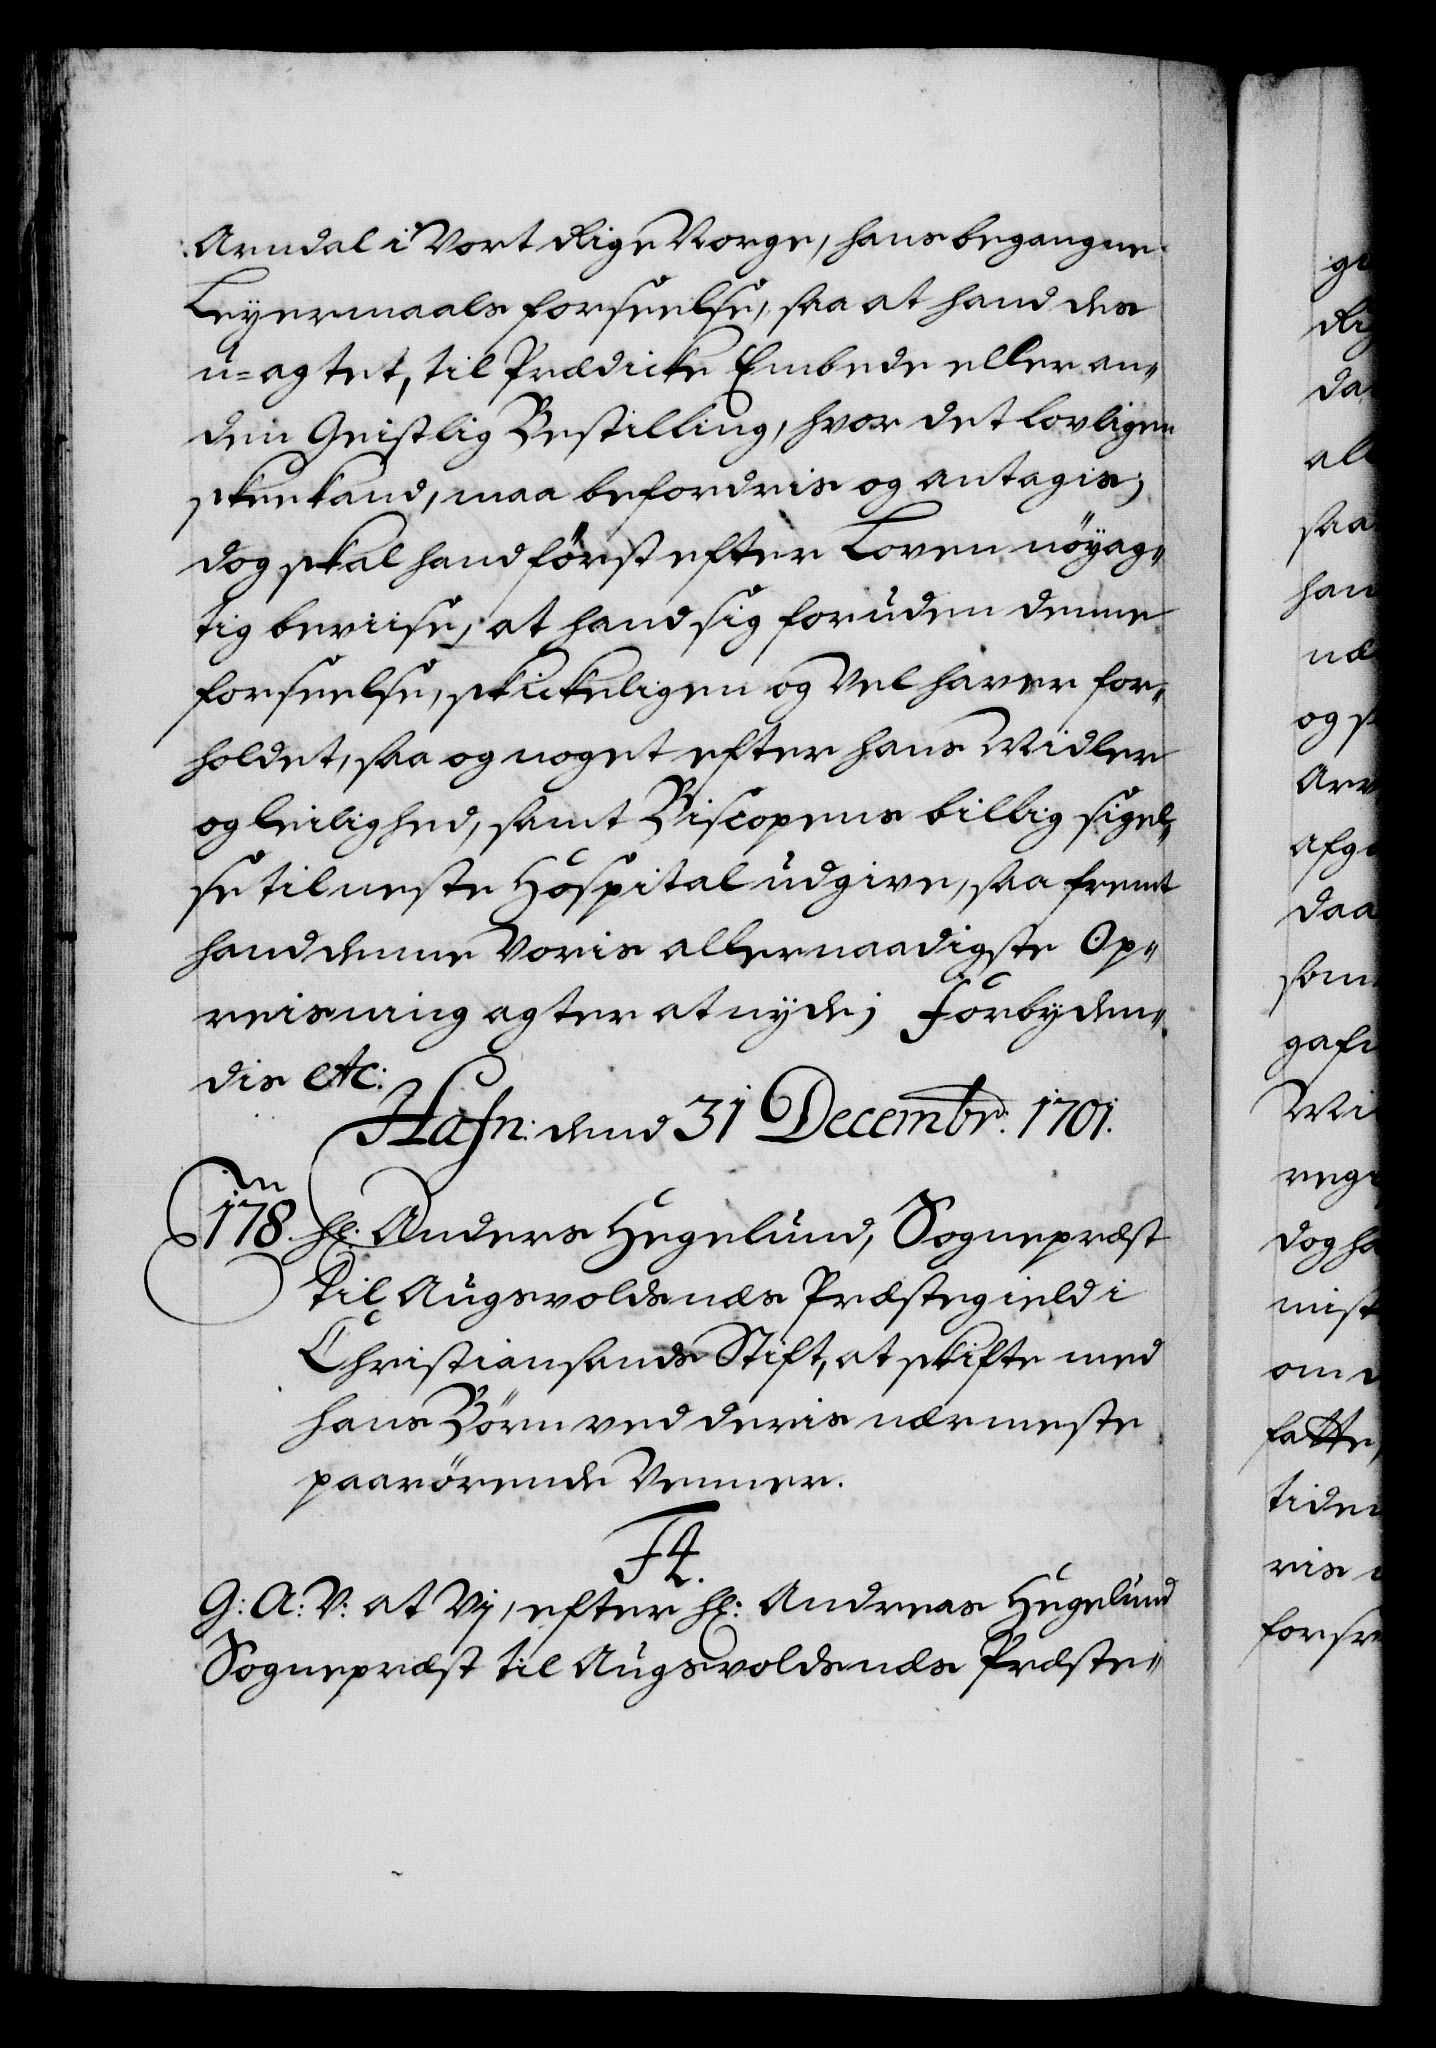 Arndal i Vort Rige Norge, hans begangne
Leyermaals forseelse, saa at hand des
u=agtet, til Prædicke Embede eller an„
den Geistlig Bestilling, hvor det lovligen
skee kand, maa befordris og antagis;
dog skal hand först efter Loven nöyag„
tig beviise, at hand sig foruden denne
forseelse, skickeligen og vel haver for„
holdet, saa og noget efter hans Midler
og leilighed, samt Biscopens billig sigel„
se til neste Hospital udgive, saa fremt
hand denne Voris allernaadigste Op„
reisning agter at nyde; Forbyden„
dis etc:
Hafn: dend 31 Decembr: 1701.
178. Hr: Anders Hegelund, Sognepræst
til Augsvoldsnæs Præstegield i
Christiansands Stift, at skifte med
hans Börn ved deris nærmeste
paarörende Venner.
F4.
G: A: V: at Vj, efter Hr: Andreas Hegelund
Sognepræst til Augsvoldsnæs Præste„